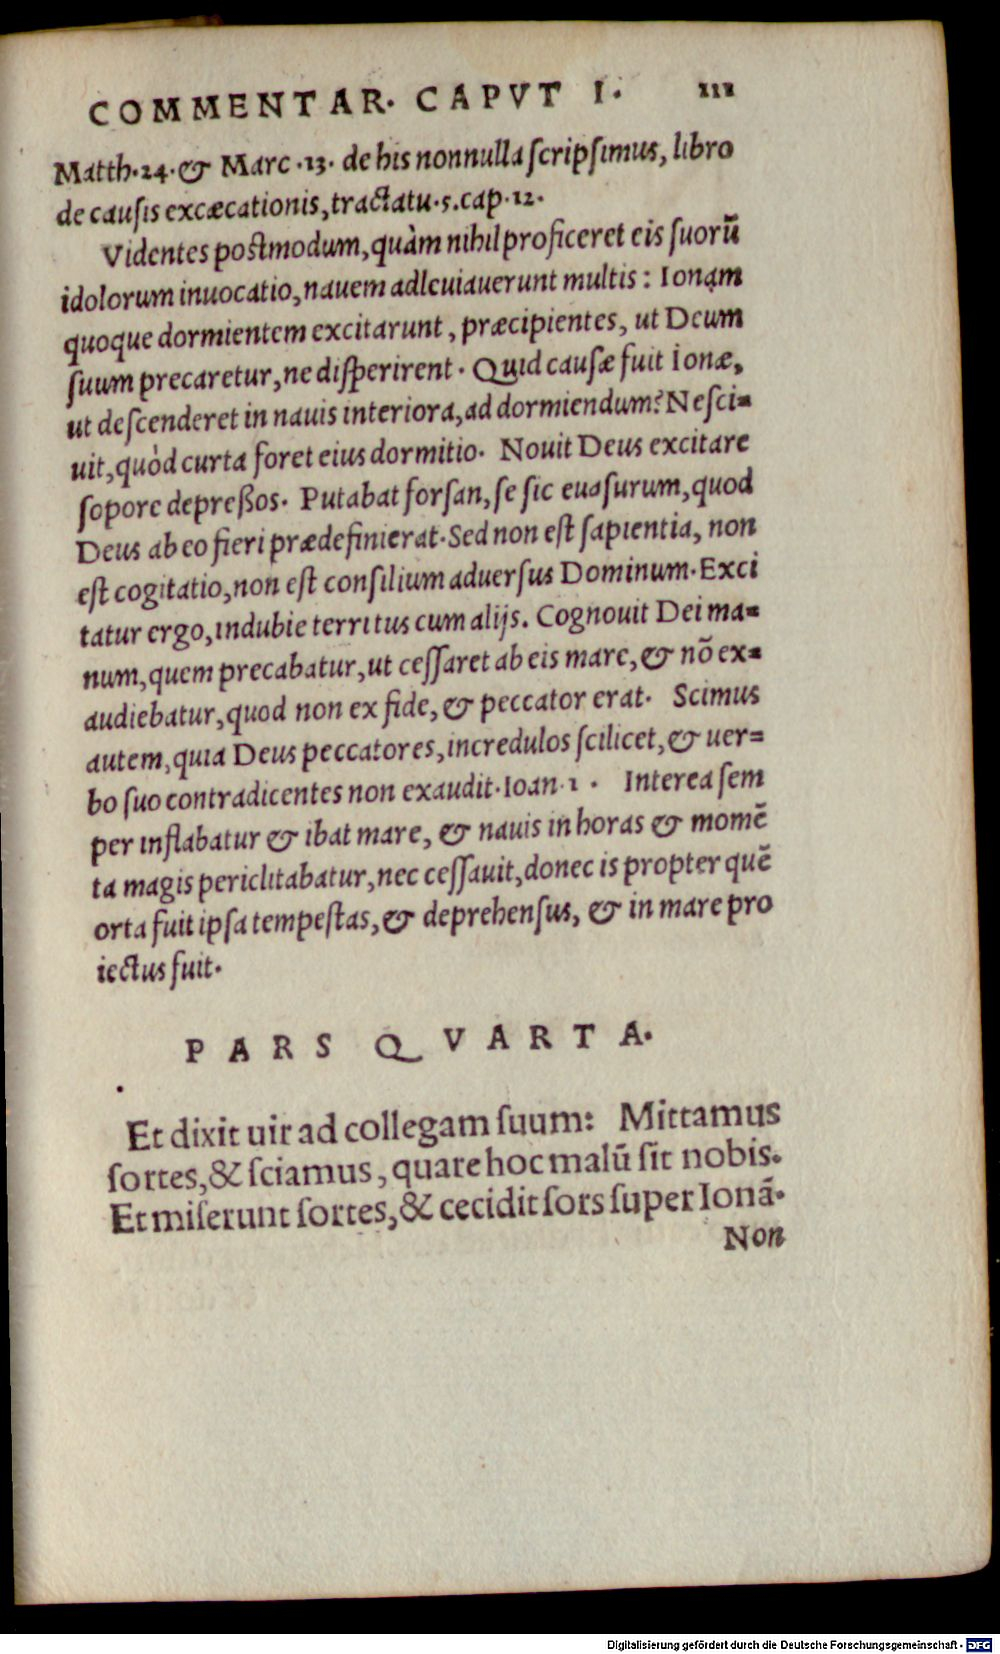 COMMENTAR. CAPVT I. 111
Matth.24.& Marc.13. de his nonnulla ſcripſimus, libro
de cauſis excæcationis, tractatu.5.cap.12.
Videntes poſtmodum, quàm nihil proficeret eis ſuorū
idolorum inuocatio, nauem adleuiauerunt multis: Ionam
quoque dormientem excitarunt, præcipientes, ut Deum
ſuum precaretur, ne diſperirent. Quid cauſæ fuit Ionæ,
ut deſcenderet in nauis interiora, ad dormiendum? Neſci⸗
uit, quòd curta foret eius dormitio. Nouit Deus excitare
ſopore depreßos. Putabat forſan, ſe ſic euaſurum, quod
Deus ab eo fieri prædefinierat. Sed non eſt ſapientia, non
eſt cogitatio, non eſt conſilium aduerſus Dominum. Exci
tatur ergo, indubie territus cum alijs. Cognouit Dei ma⸗
num, quem precabatur, ut ceſſaret ab eis mare, & nō ex⸗
audiebatur, quod non ex fide, & peccator erat. Scimus
autem, quia Deus peccatores, incredulos ſcilicet, & uer⸗
bo ſuo contradicentes non exaudit. Ioan.1. Interea ſem
per inflabatur & ibat mare, & nauis in horas & momē
ta magis periclitabatur, nec ceſſauit, donec is propter quē
orta fuit ipſa tempeſtas, & deprehenſus, & in mare pro
iectus fuit.
PARS QVARTA.
Et dixit uir ad collegam ſuum: Mittamus
ſortes, & ſciamus, quare hoc malū ſit nobis.
Et miſerunt ſortes, & cecidit ſors ſuper Ionā.
Non
Digitalisierung gefördert durch die Deutsche Forschungsgemeinschaft - DFG